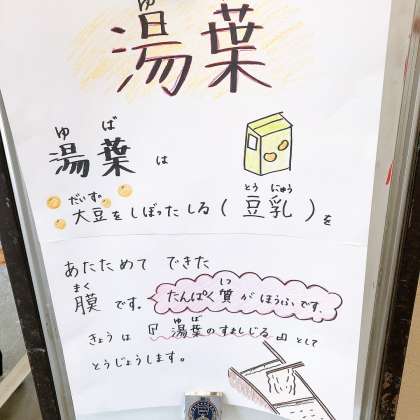 ゆ
湯葉
ゆ ば
湯葉は
だいず
大豆をしぼったしる(豆乳)を
とう にゅう
あたためて できた
まく
膜です。
たんぱく質がほうふです。
しつ
きょうは『湯葉のすましじる』として
ゆ ば
とうじょうします。